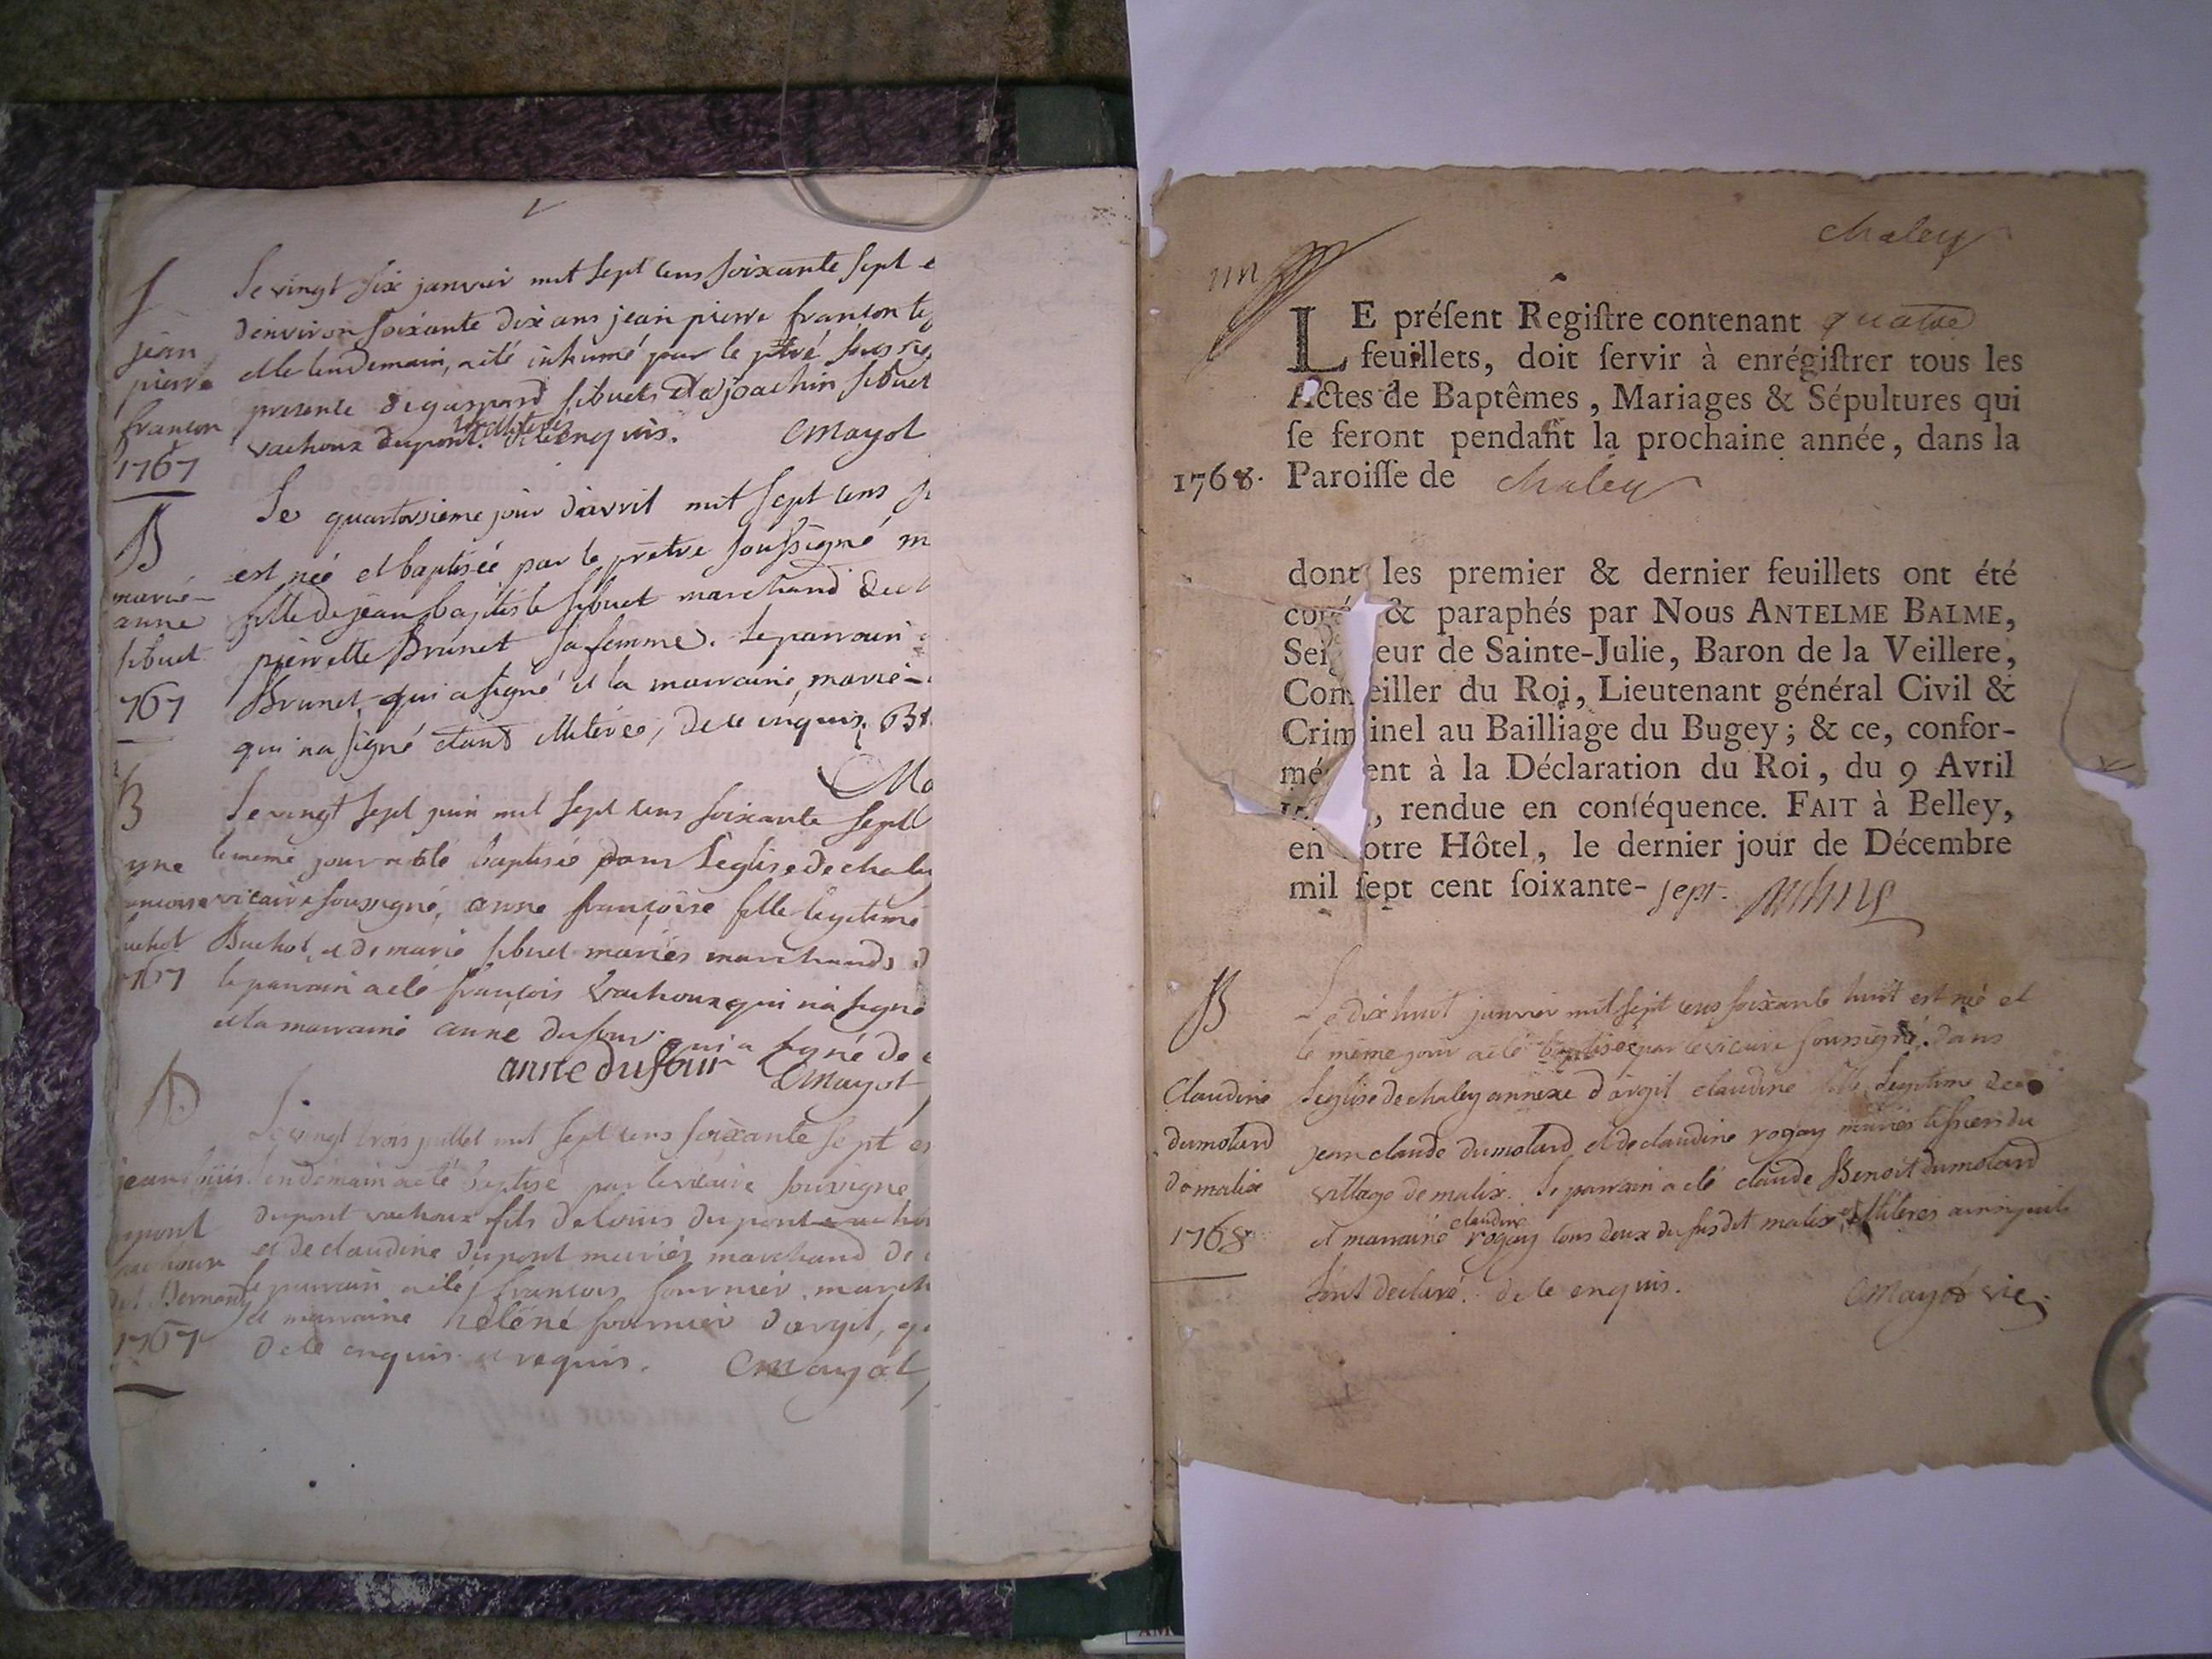 S
jean
pierre
françon
1767
Le vingt six janvier mil sept cens soixante sept e
d'environ soixante dix ans jean pierre françon
et le lendemain, a été inhumé par le ptré soussig
presence de gaspard sibuet et de joachin sibuet
vachoux dupont. illiteres de ce enquis. CMayol
B
marie-
anne
sibuet
767
Le quatorsieme jour d'avril mil sept cens
est née et baptisée par le prêtre soussigné m
fille de jean baptiste sibuet marchand de
pierrette Brunet sa femme. Le parrain
Brunet qui a signé et la marraine, marie-
qui n'a signé étant illiterée, de ce enquis. Br
Ma
B
yne
ancoise
uchot
767
Le vingt sept juin mil sept cens soixante sept
le meme jour a été baptisée dans l'eglise de chaley
vicaire soussigné, anne françoise fille legitime
Buchot, et de marie sibuet mariés marchands d
le parrain a été françois vachoux qui n'a signé
et la marraine anne dufour qui a signé de
anne dufour CMayol
B
jean louis
upont
achoux
1767
Le vingt trois juillet mil sept cens soixante sept es
lendemain a été baptisé par le vicaire soussigné
dupont vachoux fils de louis dupont vachou
et de claudine dupont mariés marchand de
le parrain a été françois fournier march
et marraine heléne fournier d'argil, q
de ce enquis et requis. CMayol
chaley
un
LE préſent Regiſtre contenant quatre
feuillets, doit ſervir à enrégiſtrer tous les
Actes de Baptêmes, Mariages & Sépultures qui
ſe feront pendant la prochaine année, dans la
1768. Paroiſſe de chaley
dont les premier & dernier feuillets ont été
coté & paraphés par Nous ANTELME BALME,
Seig eur de Sainte-Julie, Baron de la Veillere,
Con eiller du Roi, Lieutenant général Civil &
Crim inel au Bailliage du Bugey; & ce, confor-
mé ent à la Déclaration du Roi, du 9 Avril
, rendue en conſéquence. FAIT à Belley,
en otre Hôtel, le dernier jour de Décembre
mil ſept cent ſoixante- sept.
B
Claudine
dumolard
de malix
1768
Le dix huit janvier mil sept cens soixante huit est née et
le même jour a été baptisée par le vicaire soussigné, dans
l'eglise de chaley annexe d'argil claudine fille legitime de
jean claude dumolard et de claudine rogay mariés tissier du
village de malix. Le parrain a été claude Benoit dumolard
et marraine claudine rogay tous deux du susdit malix, et illiteres ainsi qu'ils
l'ont declaré. de ce enquis. CMayol vic.